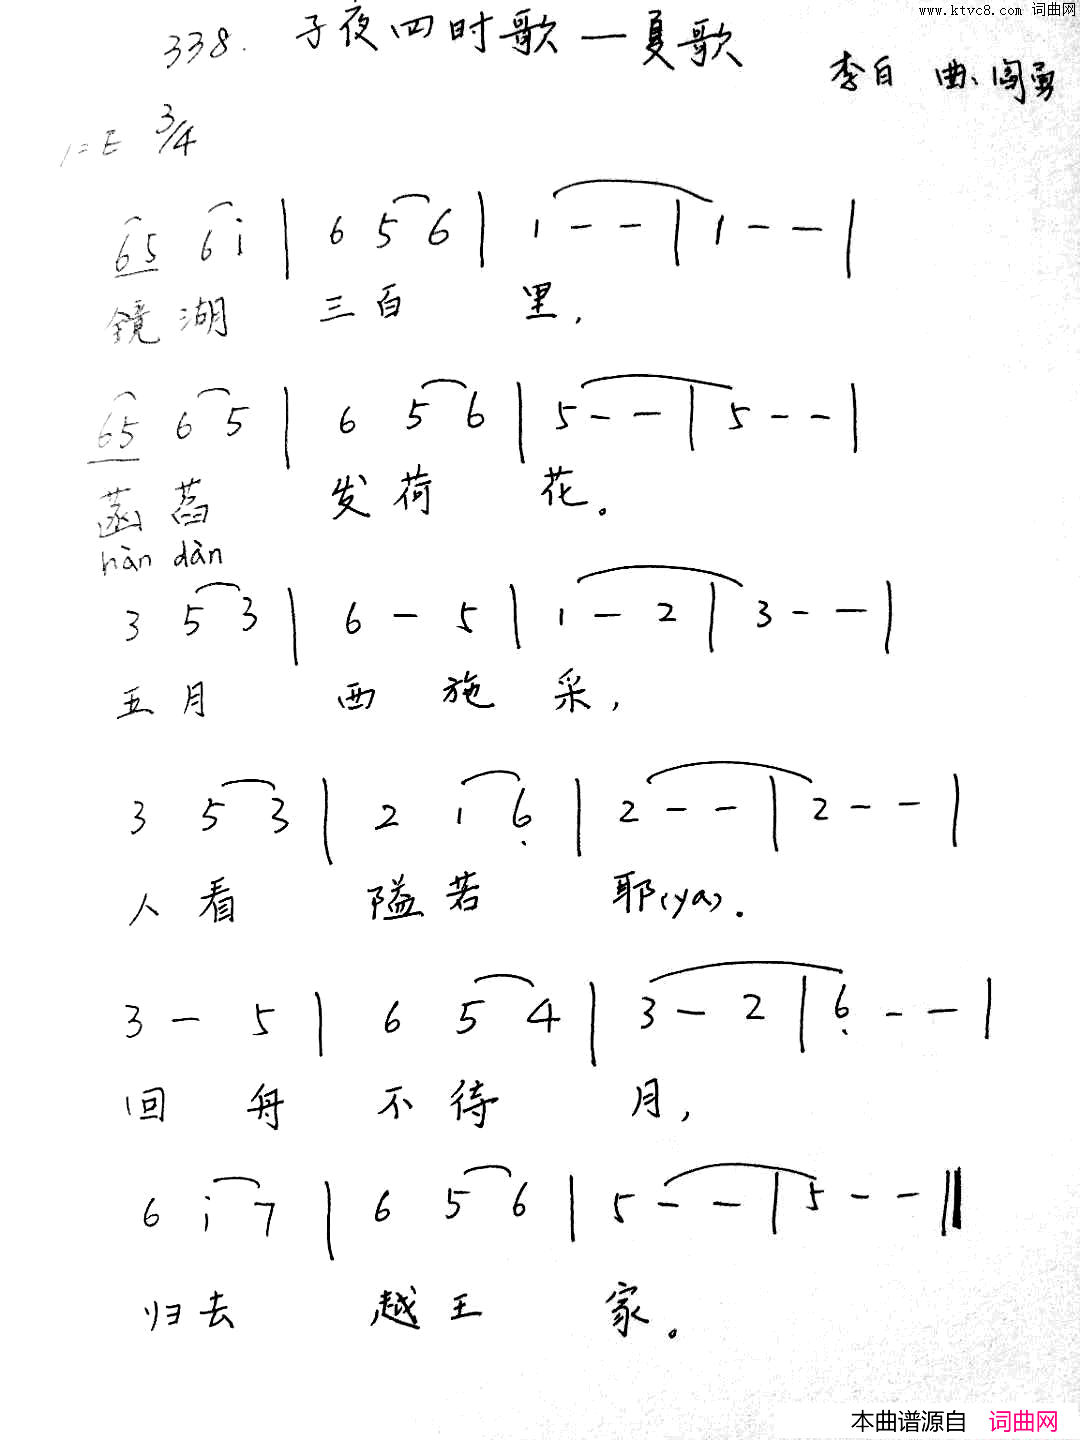 www.ktvc8.com 词曲网
338. 子夜四时歌—夏歌
李白 曲、阎勇
1=E 3/4
65 6i | 6 5 6 | 1 - - | 1 - - |
镜湖 三百 里，
65 6 5 | 6 5 6 | 5 - - | 5 - - |
菡萏 发荷 花。
hàn dàn
3 5 3 | 6 - 5 | 1 - 2 | 3 - - |
五月 西施 采，
3 5 3 | 2 1 6̣ | 2 - - | 2 - - |
人看 隘若 耶(ya).
3 - 5 | 6 5 4 | 3 - 2 | 6̣ - - |
回舟 不待 月，
6 i 7 | 6 5 6 | 5 - - | 5 - - ‖
归去 越王 家。
本曲谱源自 词曲网